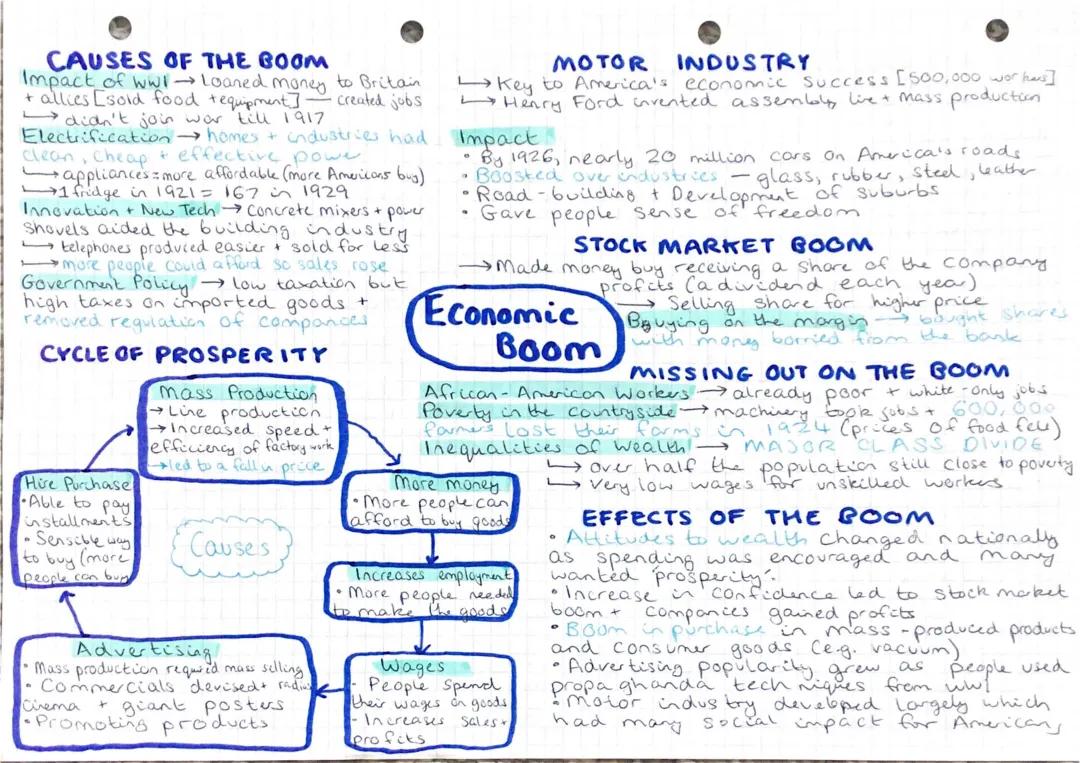 CAUSES OF THE BOOM
Impact of WWI → Loaned money to Britain
+ allies [sold food + equipment] — created jobs
↳ didn't join war till 1917
Electrification → homes + industries had
clean, cheap + effective power
↳ appliances = more affordable (more Americans buy)
↳ 1 fridge in 1921 = 167 in 1929
Innovation + New Tech → Concrete mixers + power
shovels aided the building industry
↳ telephones produced easier + sold for less
↳ more people could afford so sales rose
Government Policy → low taxation but
high taxes on imported goods +
removed regulation of companies
CYCLE OF PROSPERITY
Mass Production
→ Line production
→ Increased speed +
efficiency of factory work
→ led to a fall in price
More money
• More people can
afford to buy goods
Increases employment
• More people needed
to make the goods
Wages
- People spend
their wages on goods
- Increases sales +
profits
Advertising
• Mass production required mass selling
• Commercials devised + radio
cinema + giant posters
• Promoting products
Hire Purchase
• Able to pay
installments
• Sensible way
to buy (more
people can buy
Causes
Economic
Boom
MOTOR INDUSTRY
↳ Key to America's economic success [500,000 workers]
↳ Henry Ford invented assembly line + mass production
Impact
• By 1926, nearly 20 million cars on America's roads
• Boosted over industries — glass, rubber, steel, leather
• Road-building + Development of suburbs
• Gave people sense of freedom
STOCK MARKET BOOM
→ Made money buy receiving a share of the company
profits (a dividend each year)
→ Selling share for higher price
Buying on the margin → bought shares
with money borried from the bank
MISSING OUT ON THE BOOM
African-American Workers → already poor + white-only jobs
Poverty in the countryside → machinery took jobs + 600,000
farmers lost their farms in 1924 (prices of food fell)
Inequalities of Wealth → MAJOR CLASS DIVIDE
↳ over half the population still close to poverty
↳ very low wages for unskilled workers
EFFECTS OF THE BOOM
• Attitudes to wealth changed nationally
as spending was encouraged and many
wanted 'prosperity'.
• Increase in confidence led to stock market
boom + companies gained profits
• Boom in purchase in mass-produced products
and consumer goods (e.g. vacuum)
• Advertising popularity grew as people used
propaghanda techniques from WWI
• Motor industry developed largely which
had many social impact for Americans